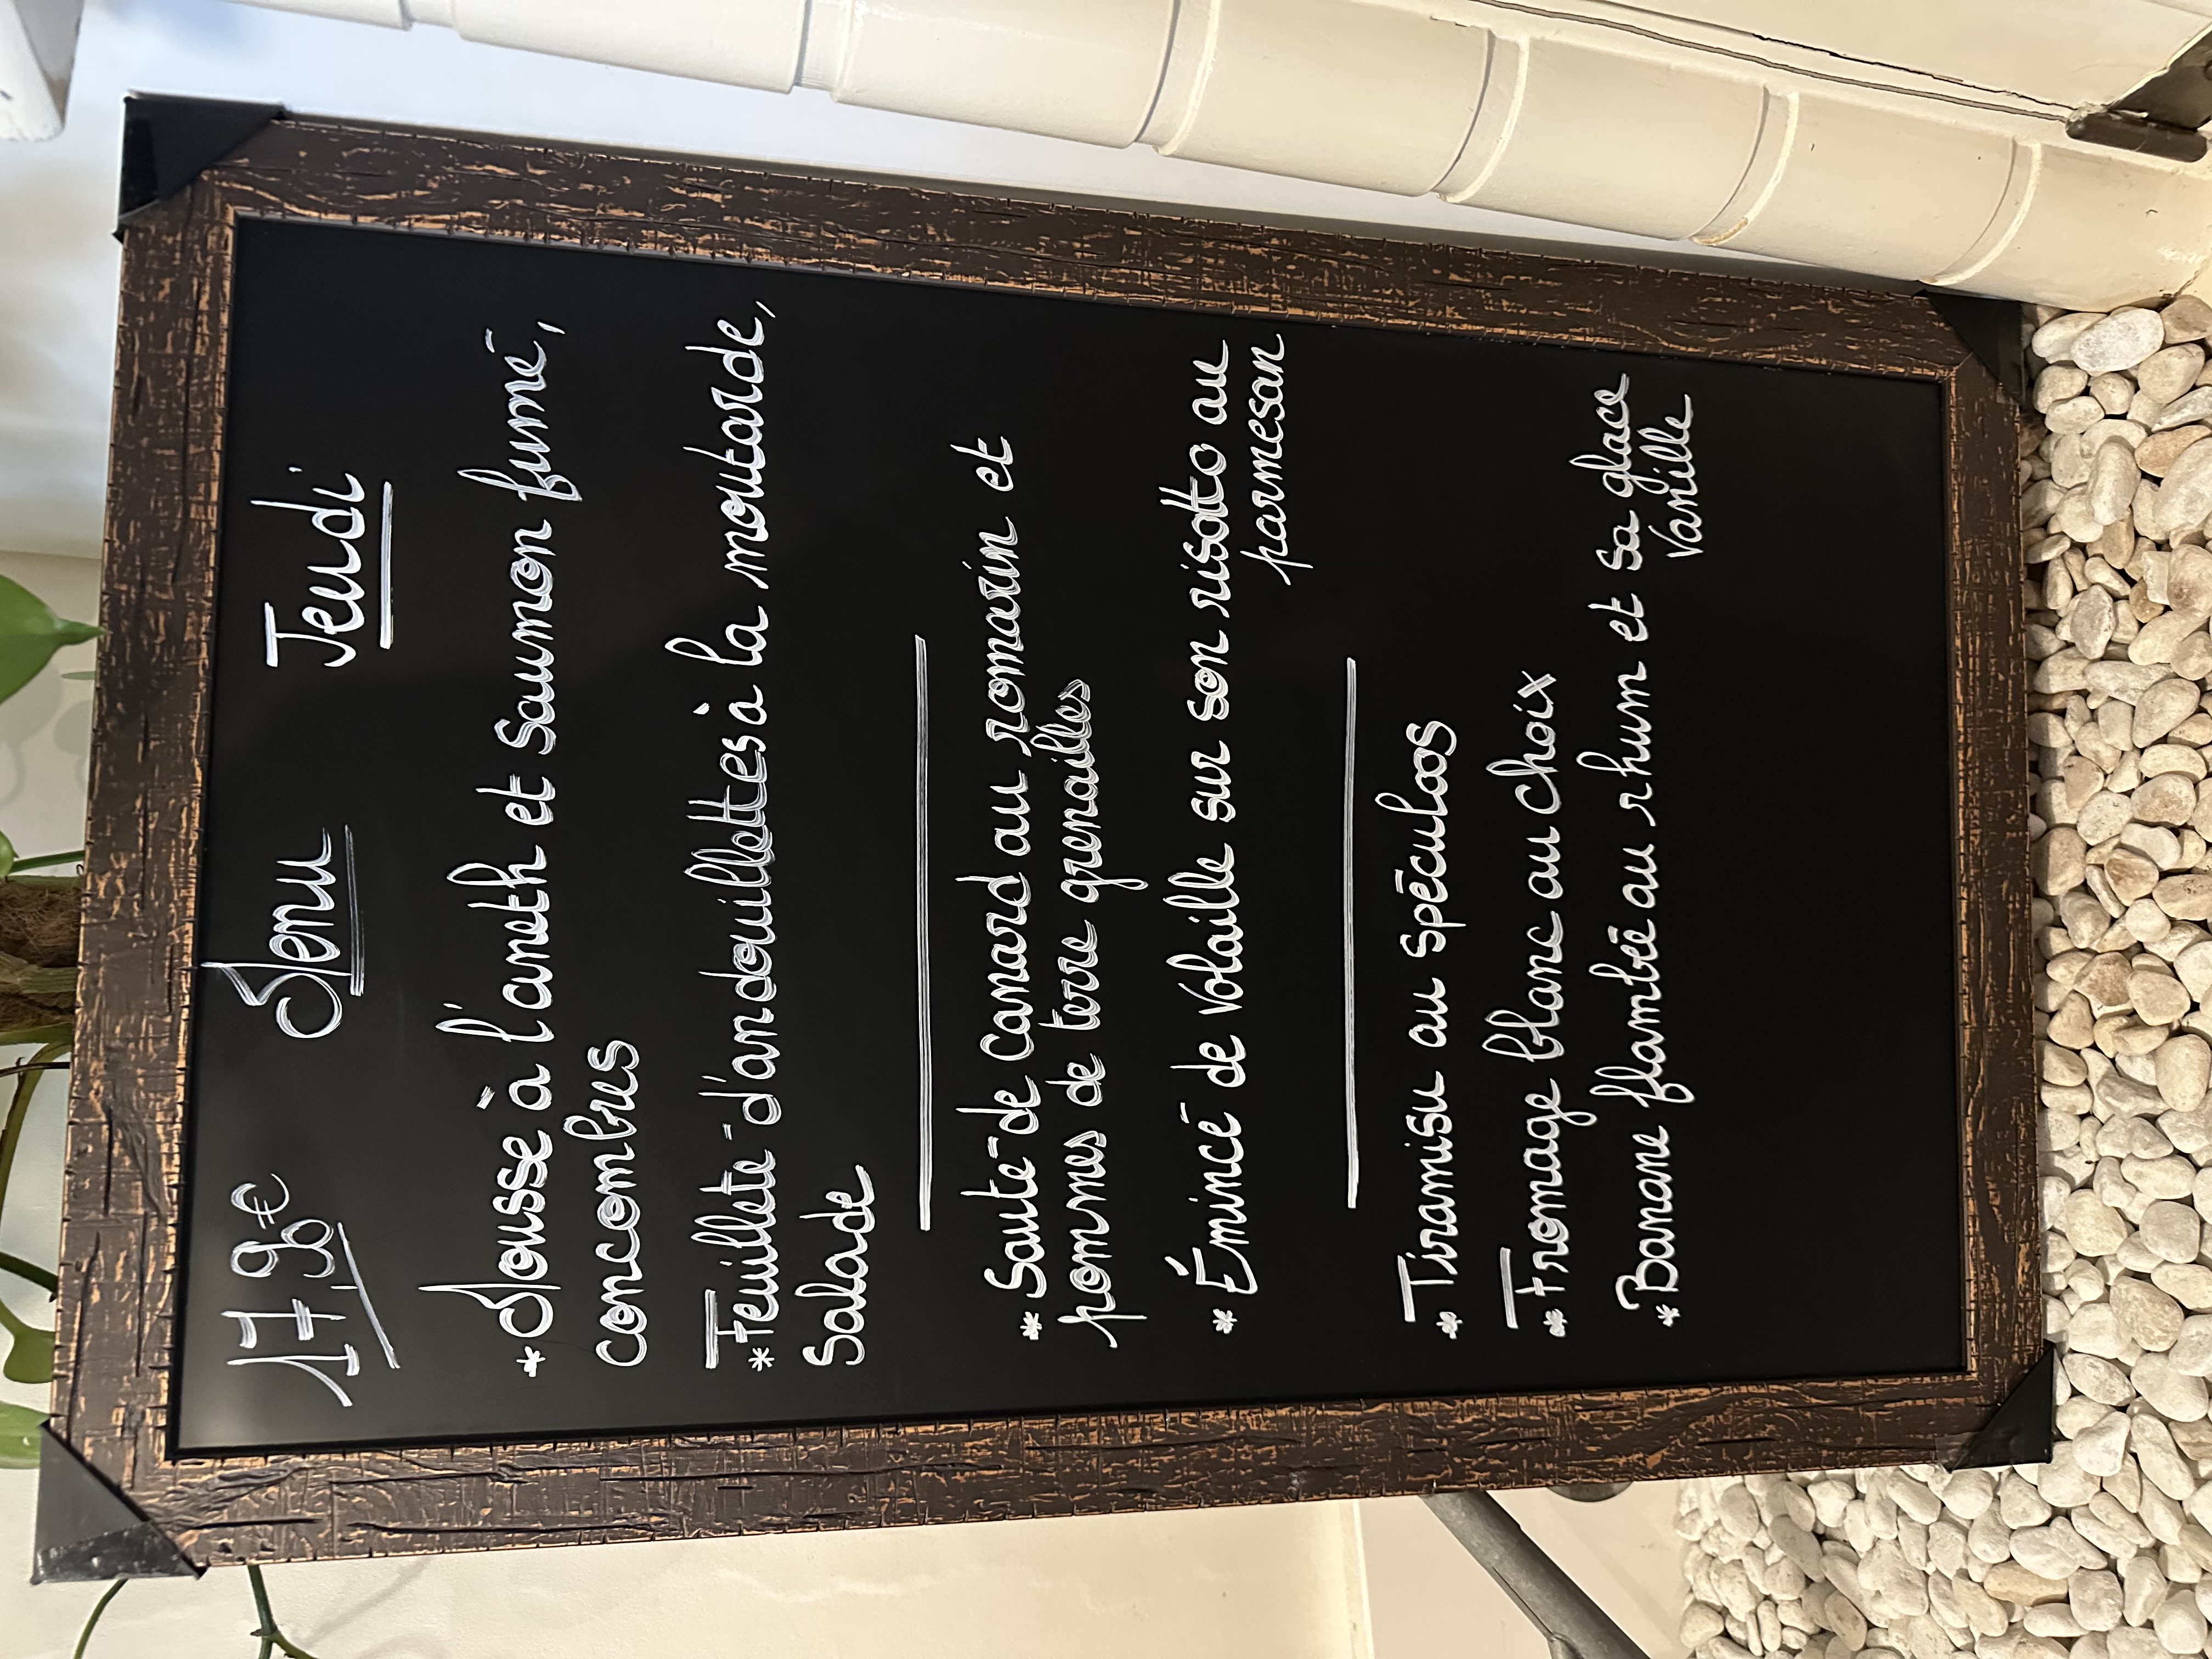 17,90€ Menu Jeudi
* Mousse à l'aneth et saumon fumé,
concombres
* Feuilleté d'andouillettes à la moutarde,
salade
* Sauté de canard au romarin et
pommes de terre grenailles
* Émincé de volaille sur son risotto au
parmesan
* Tiramisu au spéculoos
* Fromage blanc au choix
* Banane flambée au rhum et sa glace
vanille